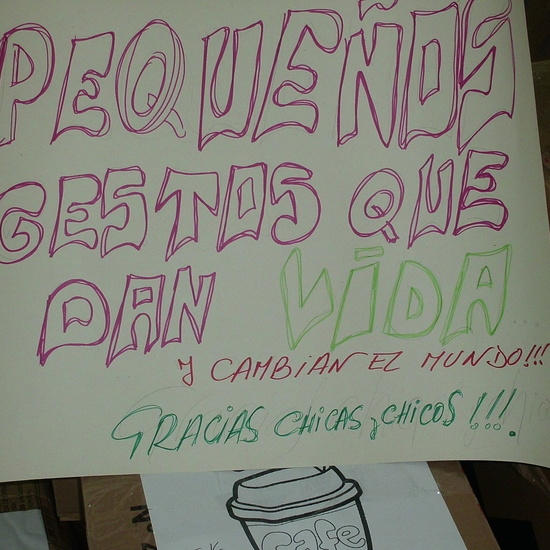 PEQUEÑOS
GESTOS QUE
DAN VIDA
Y CAMBIAN EL MUNDO!!!
GRACIAS CHICAS y CHICOS!!!.
Cafe